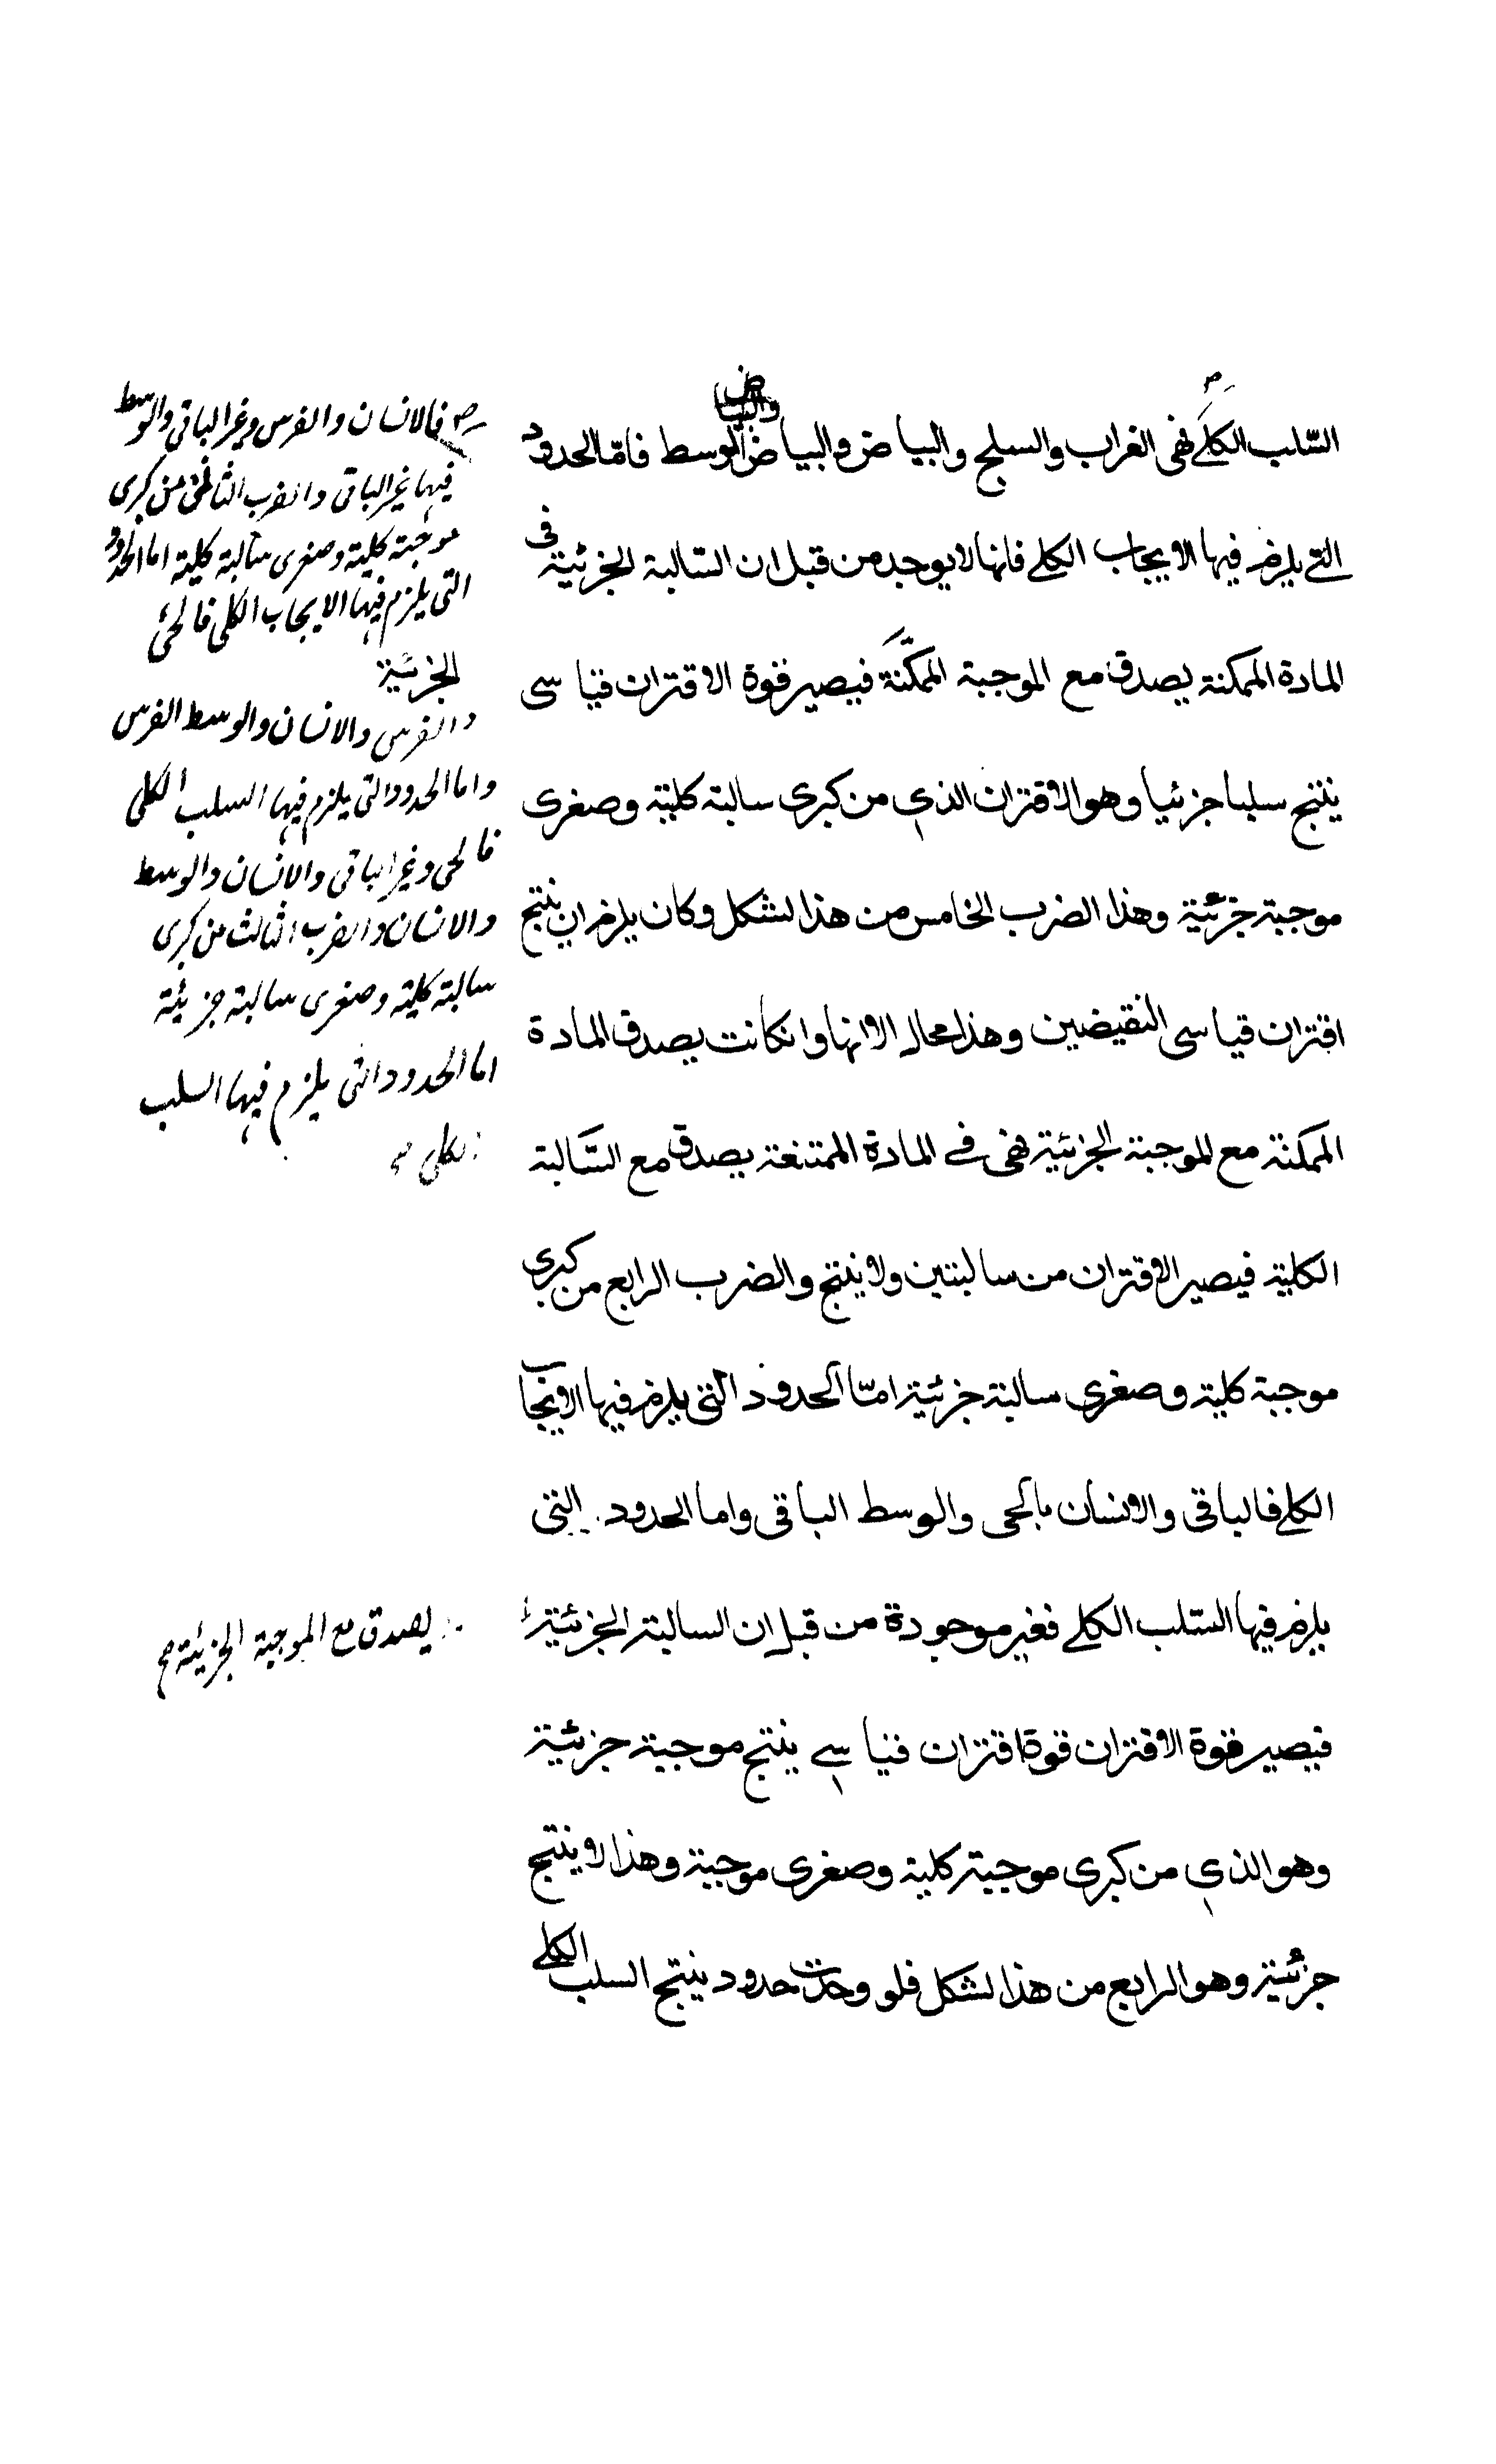 السّلب الكلے فهى الغراب والسلج والبياض والبياض الوسط فامّا الحدود
والبياض
التے يلزم فيها الايجاب الكلے فانها لا يوجد من قبل ان السّالبة الجزئية فى
المادة الممكنة يصدق مع الموجبة الممكنة فيصير قوة الاقتران قياسى
ينتج سلبا جزئيا وهو الاقتران الذي من كبرى سالبة كلية وصغرى
موجبة جزئية وهذا الضرب الخامس من هذا لشكل وكان يلزم ان ينتج
اقتران قياسى النقيضين وهذا محال الا انها وانكانت يصدق المادة
الممكنة مع الموجبة الجزئية فهى فے المادة الممتنعة يصدق مع السّالبة
الكلية فيصير الاقتران من سالبتين ولا ينتج والضرب الرابع من كبرى
موجبة كلية وصغرى سالبة جزئية امّا الحدود التى يلزم فيها الايجاب
الكلے فالباقى والانسان بالحى والوسط الباقى واما الحدود التى
يلزم فيها السّلب الكلے فغير موجودة من قبل ان السالبة الجزئية
فيصير قوة الاقتران قوة اقتران قياسے ينتج موجبة جزئية
وهو الذي من كبرى موجبة كلية وصغرى موجبة وهذا لا ينتج
جزئية وهو الرابع من هذا لشكل فلو وجدت حدود ينتج السلب الكلے
فالانسان والفرس وغير الباقى والوسط
فيها غير الباقى والضرب الثانى من كبرى
موجبة كلية وصغرى سالبة كلية اما الحدود
التى يلزم فيها الايجاب الكلى فالحى
الجزئية
والفرس والانسان والوسط الفرس
واما الحدود التى يلزم فيها السلب الكلى
فالحى وغير الباقى والانسان والوسط
والانسان والضرب الثالث من كبرى
سالبة كلية وصغرى سالبة جزيئة
اما الحدود التى يلزم فيها السلب
الكلى
يصدق مع الموجبة الجزيئة صح